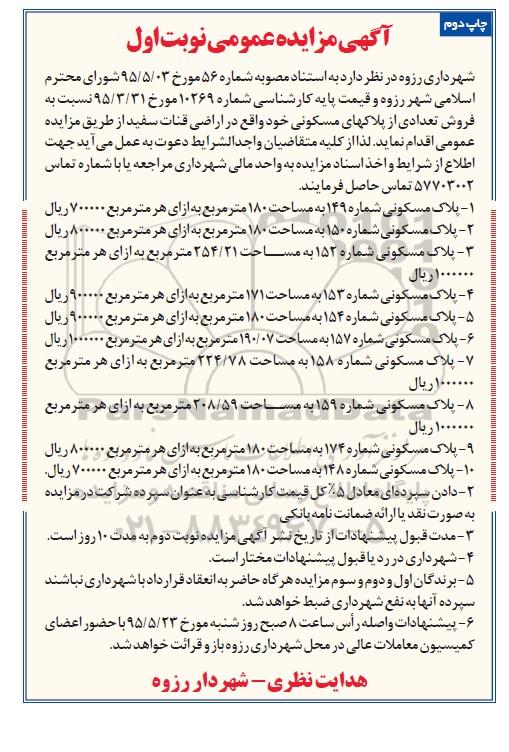 چاپ دوم
آگهی مزایده عمومی نوبت اول
شهرداری رزوه در نظر دارد به استناد مصوبه شماره ۵۶ مورخ ۹۵/۵/۰۳ شورای محترم
اسلامی شهر رزوه و قیمت پایه کارشناسی شماره ۱۰۲۶۹ مورخ ۹۵/۳/۳۱ نسبت به
فروش تعدادی از پلاکهای مسکونی خود واقع در اراضی قنات سفید از طریق مزایده
عمومی اقدام نماید. لذا از کلیه متقاضیان واجدالشرایط دعوت به عمل می آید جهت
اطلاع از شرایط و اخذ اسناد مزایده به واحد مالی شهرداری مراجعه یا با شماره تماس
۵۷۷۰۳۰۰۲ تماس حاصل فرمایند.
۱- پلاک مسکونی شماره ۱۴۹ به مساحت ۱۸۰ مترمربع به ازای هر مترمربع ۷۰۰۰۰۰ ریال
۲- پلاک مسکونی شماره ۱۵۰ به مساحت ۱۸۰ مترمربع به ازای هر مترمربع ۸۰۰۰۰۰ ریال
۳- پلاک مسکونی شماره ۱۵۲ به مساحت ۲۵۴/۲۱ مترمربع به ازای هر مترمربع
۱۰۰۰۰۰۰ ریال
۴- پلاک مسکونی شماره ۱۵۳ به مساحت ۱۷۱ مترمربع به ازای هر مترمربع ۹۰۰۰۰۰ ریال
۵- پلاک مسکونی شماره ۱۵۴ به مساحت ۱۸۰ مترمربع به ازای هر مترمربع ۹۰۰۰۰۰ ریال
۶- پلاک مسکونی شماره ۱۵۷ به مساحت ۱۹۰/۰۷ مترمربع به ازای هر مترمربع ۱۰۰۰۰۰۰ ریال
۷- پلاک مسکونی شماره ۱۵۸ به مساحت ۲۲۴/۷۸ مترمربع به ازای هر مترمربع
۱۰۰۰۰۰۰ ریال
۸- پلاک مسکونی شماره ۱۵۹ به مساحت ۲۰۸/۵۹ مترمربع به ازای هر مترمربع
۱۰۰۰۰۰۰ ریال
۹- پلاک مسکونی شماره ۱۷۴ به مساحت ۱۸۰ مترمربع به ازای هر مترمربع ۸۰۰۰۰۰ ریال
۱۰- پلاک مسکونی شماره ۱۴۸ به مساحت ۱۸۰ مترمربع به ازای هر مترمربع ۷۰۰۰۰۰ ریال.
۲- دادن سپرده‌ای معادل ۵٪ کل قیمت کارشناسی به عنوان سپرده شرکت در مزایده
به صورت نقد یا ارائه ضمانت نامه بانکی
۳- مدت قبول پیشنهادات از تاریخ نشر آگهی مزایده نوبت دوم به مدت ۱۰ روز است.
۴- شهرداری در رد یا قبول پیشنهادات مختار است.
۵- برندگان اول و دوم و سوم مزایده هرگاه حاضر به انعقاد قرارداد با شهرداری نباشند
سپرده آنها به نفع شهرداری ضبط خواهد شد.
۶- پیشنهادات واصله رأس ساعت ۸ صبح روز شنبه مورخ ۹۵/۵/۲۳ با حضور اعضای
کمیسیون معاملات عالی در محل شهرداری رزوه باز و قرائت خواهد شد.
هدایت نظری - شهردار رزوه
ParsNamadData
۰۲۱-۸۸۳۴۹۶۷۰-۵